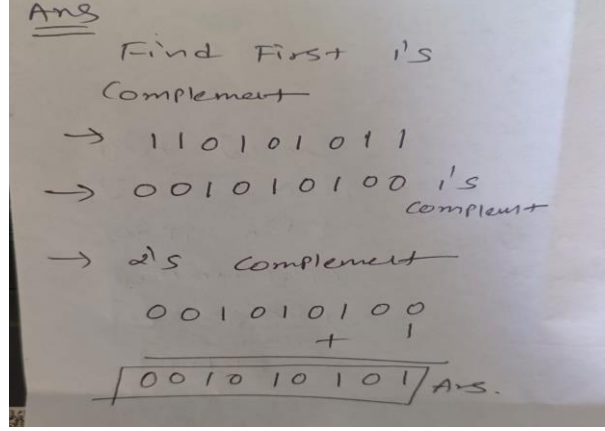 Ans
Find First 1's
Complement
→ 110101011
→ 001010100 1's
complent
→ 2's complement
001010100
+ 1
001010101 Ans.